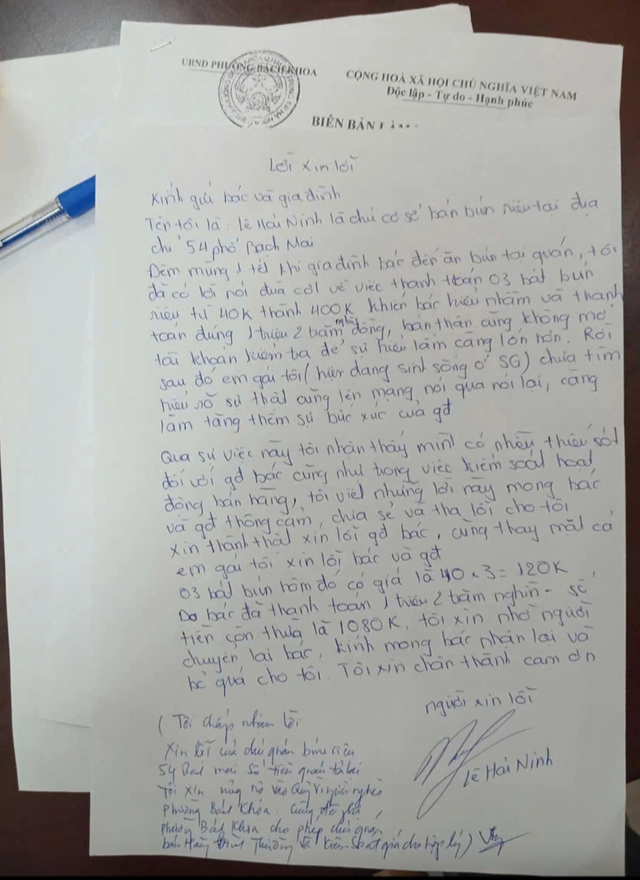 UBND PHƯỜNG BÁCH KHOA
CỘNG HOÀ XÃ HỘI CHỦ NGHĨA VIỆT NAM
Độc lập - Tự do - Hạnh phúc
BIÊN BẢN
Lời xin lỗi
Kính gửi bác và gia đình
Tên tôi là: Lê Hải Ninh là chủ cơ sở bán bún riêu tại địa
chỉ 54 phố Bạch Mai
Đêm mùng 1 tết khi gia đình bác đến ăn bún tại quán, tôi
đã có lời nói đùa cợt về việc thanh toán 03 bát bún
riêu từ 40K thành 400K khiến bác hiểu nhầm và thanh
toán đúng 1 triệu 2 trăm nghìn đồng, bản thân cũng không mở
tài khoản kiểm tra để sự hiểu lầm càng lớn hơn. Rồi
sau đó em gái tôi (hiện đang sinh sống ở SG) chưa tìm
hiểu rõ sự thật cũng lên mạng nói qua nói lại, càng
làm tăng thêm sự bức xúc của gđ
Qua sự việc này tôi nhận thấy mình có nhiều thiếu sót
đối với gđ bác cũng như trong việc kiểm soát hoạt
động bán hàng, tôi viết những lời này mong bác
và gđ thông cảm, chia sẻ và tha lỗi cho tôi
Xin thành thật xin lỗi gđ bác, cũng thay mặt cả
em gái tôi xin lỗi bác và gđ
03 bát bún hôm đó có giá là 40 x 3 = 120K
Do bác đã thanh toán 1 triệu 2 trăm nghìn - số
tiền còn thừa là 1080K, tôi xin nhờ người
chuyển lại bác, kính mong bác nhận lại và
bỏ quá cho tôi. Tôi xin chân thành cảm ơn
Người xin lỗi
Lê Hải Ninh
(Tôi chấp nhận lời
xin lỗi của chủ quán bún riêu
54 Bạch Mai số tiền quán trả lại
Tôi xin ủng hộ vào Quỹ vì người nghèo
Phường Bách Khoa. Cũng đề nghị
phường Bách Khoa cho phép chủ quán
bán hàng bình thường và kiểm soát giá cho hợp lý)